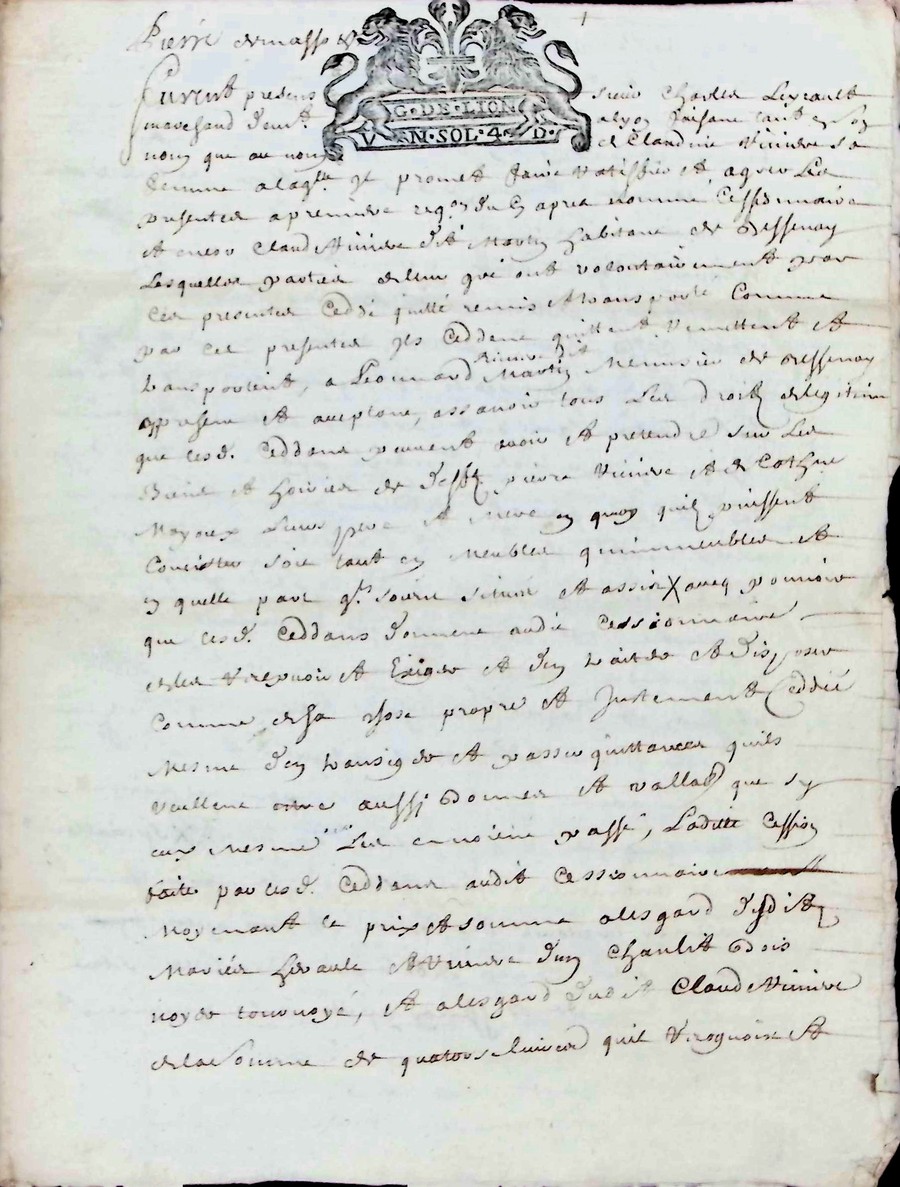 Pierre demasse &
G·DE·LION
V N·SOL·4·D·
Furent presens sieur Charles Leyrault
marchand demt. a lyon faisant tant en son
nom que au nom de Claudine Viniere sa
femme a laqlle. jl promet faire ratiffier et agreer Les
presentes a premiere reqon du cy apres nomme Cessionnaire
et encor Claude Viniere dit Martin habitant de dessenay
Lesquelles parties de leur gré ont volontairement par
Ces presentes Ceddé quitté remis et transporté Comme
par Ces presentes jls Ceddent quittent remettent et
transportent, a Leonnard Viniere dit Martin Meunier de dessenay
present et acceptant, assavoir tous Les droits de legitime
que lesd. Ceddans peuvent avoir et pretendre sur Les
Biens et hoiries de deffts pierre Viniere et de Cathne
Moyoux Leurs pere et Mere en quoy quils puissent
Consister soit tant en Meubles qu'immeubles et
en quelle part qls. soient situés et assis X avec pouvoir
que lesd. Ceddans donnent audit Cessionnaire
de les recepvoir et Exiger et d'en traiter et disposer
Comme de sa chose propre et justement Ceddée
Mesme d'en transiger et passer quittances quils
veullent estre aussy bonnes et vallables que sy
eux Mesme Les avoient passé, Laditte Cession
faite par lesd. Ceddans audit Cessionnaire
Moyenant le prix et somme a lesgard desdits
Mariés et Viniere d'un Chaslit bois
noyer tournoyé, et a lesgard dudit Claude Viniere
de la somme de quatorse livres quil et